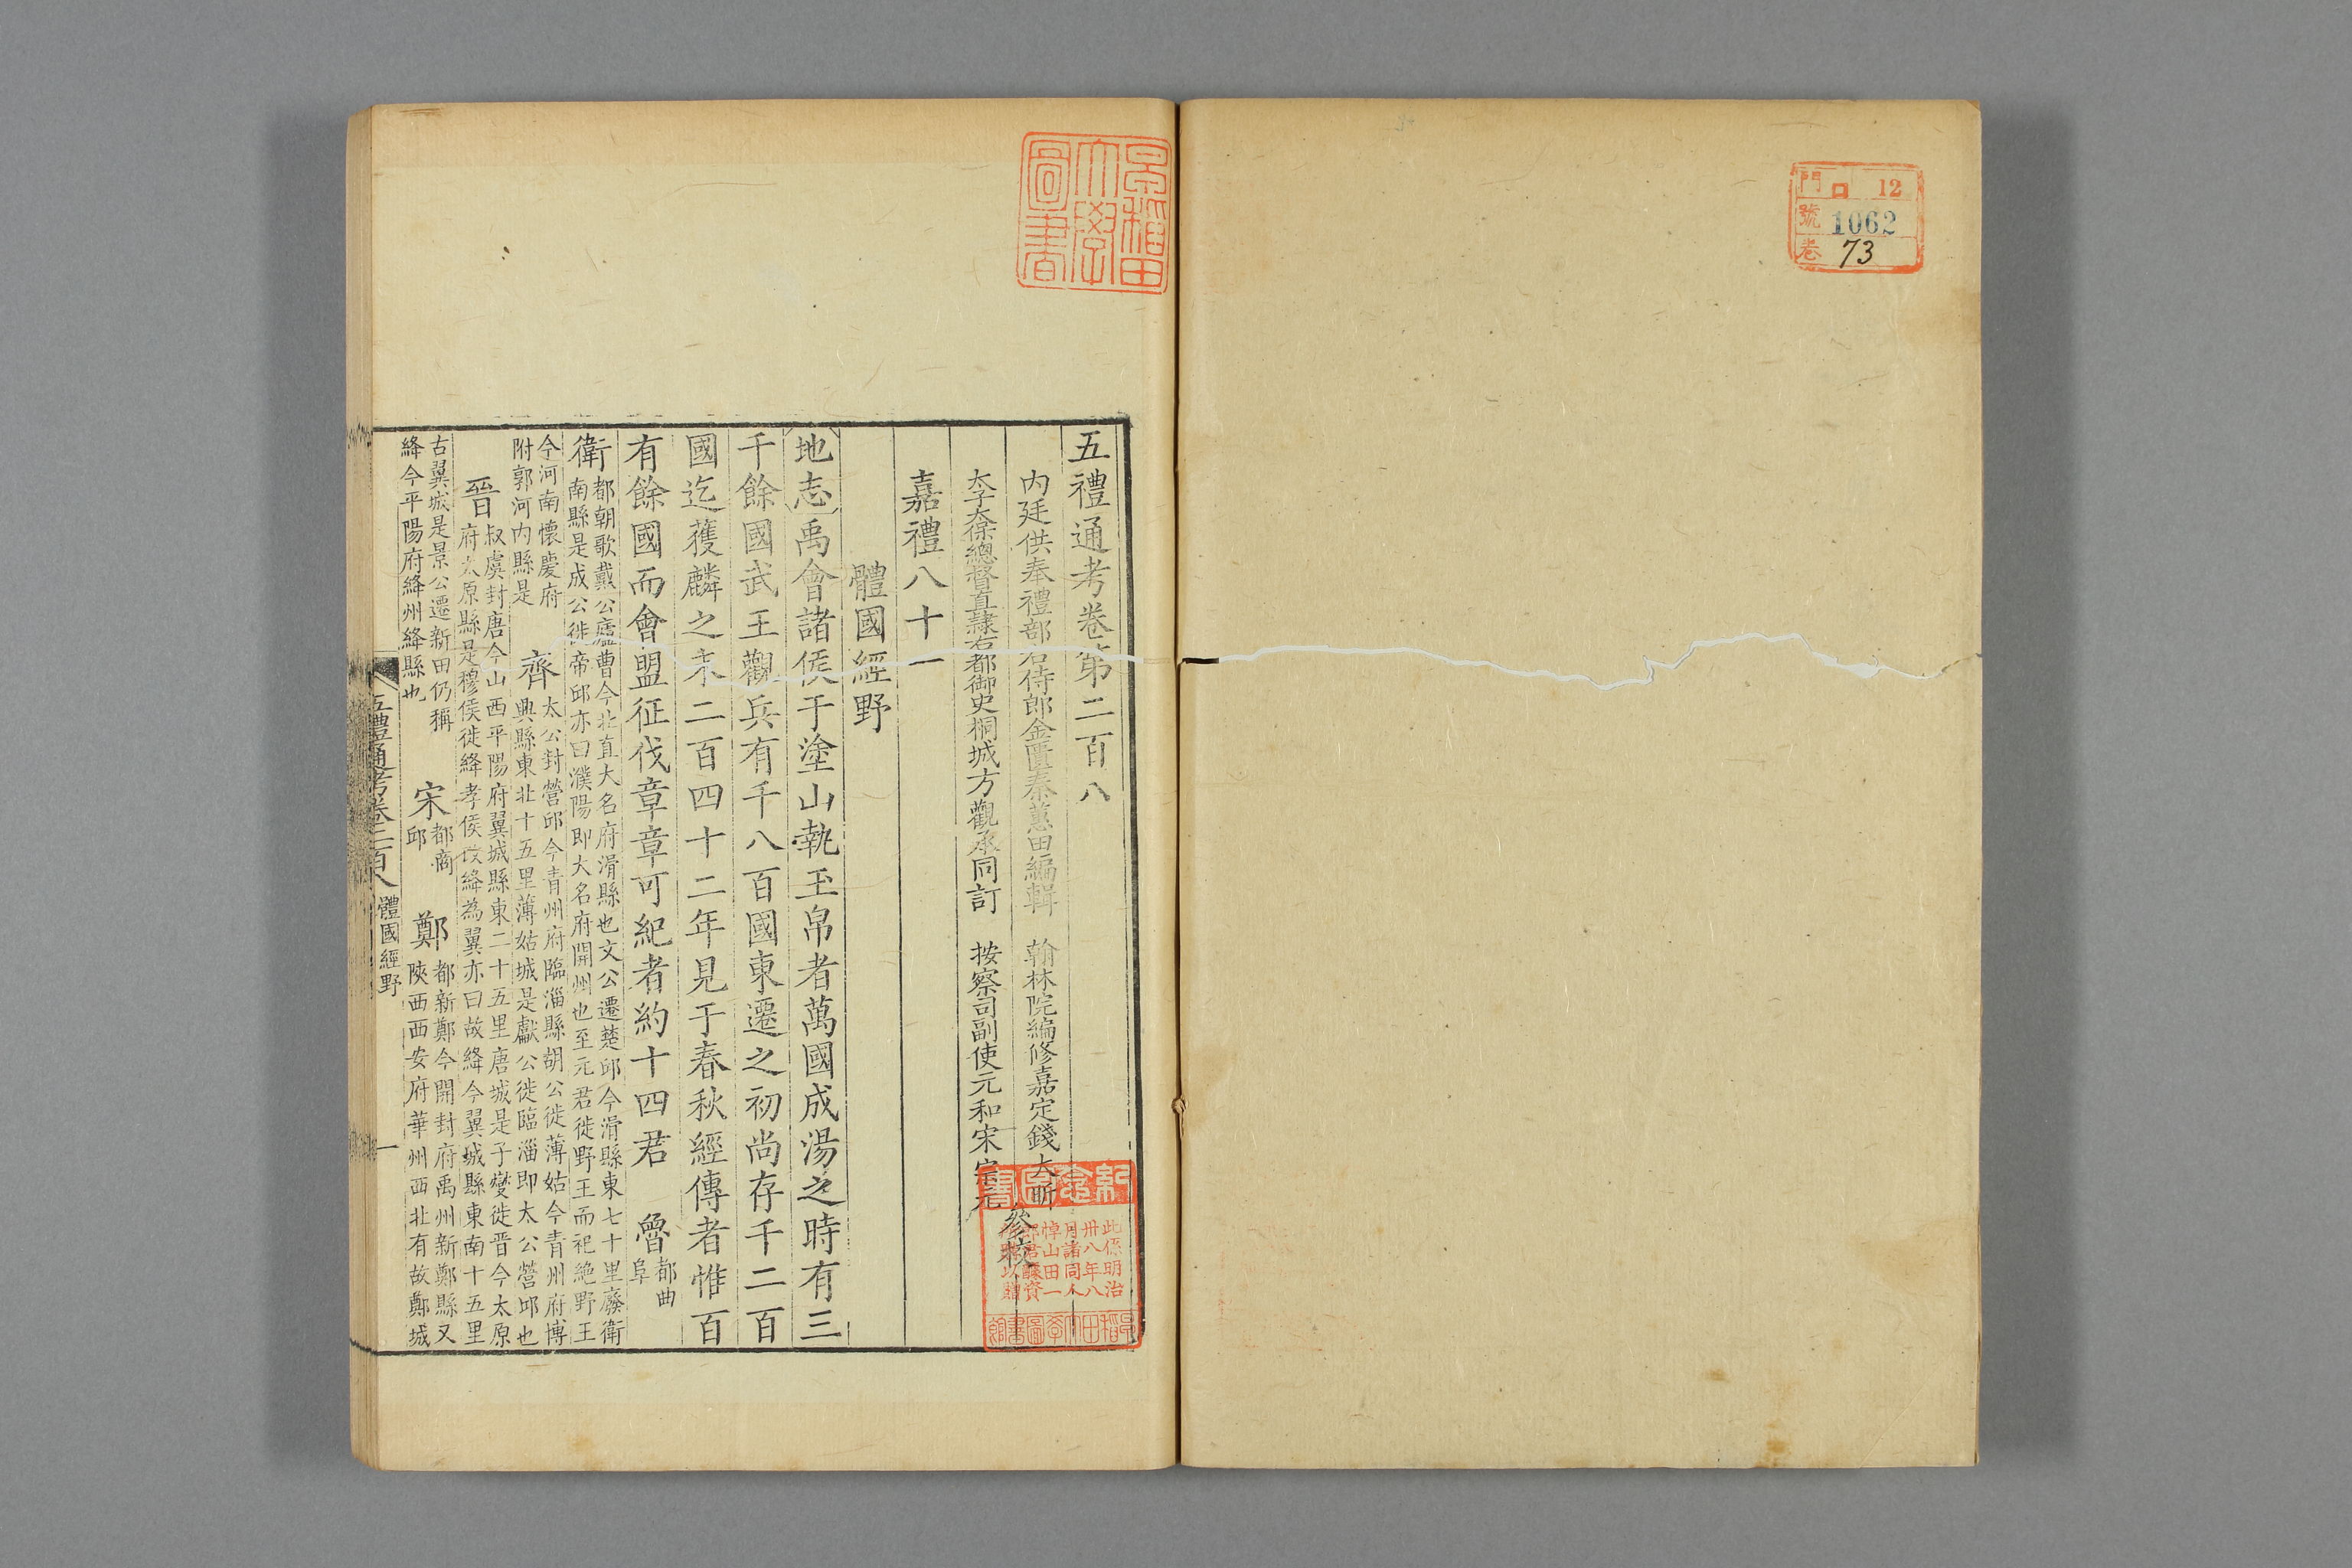 門 口 12
號 1062
卷 73
早稻田
大學
圖書
五禮通考卷第二百八
內廷供奉禮部右侍郎金匱秦蕙田編輯 翰林院編修嘉定錢大昕
太子太保總督直隸右都御史桐城方觀承同訂 按察司副使元和宋宗元
參校
嘉禮八十一
體國經野
地志禹會諸侯于塗山執玉帛者萬國成湯之時有三
千餘國武王觀兵有千八百國東遷之初尚存千二百
國迄獲麟之末二百四十二年見于春秋經傳者惟百
有餘國而會盟征伐章章可紀者約十四君 魯都曲
阜
衛都朝歌戴公廬曹今北直大名府滑縣也文公遷楚邱今滑縣東七十里廢衛
南縣是成公徙帝邱亦曰濮陽即大名府開州也至元君徙野王而祀絕野王
今河南懷慶府
附郭河內縣是
齊太公封營邱今青州府臨淄縣胡公徙薄姑今青州府博
興縣東北十五里薄姑城是獻公徙臨淄即太公營邱也
晉叔虞封唐今山西平陽府翼城縣東二十五里唐城是子燮徙晉今太原
府太原縣是穆侯徙絳孝侯改絳為翼亦曰故絳今翼城縣東南十五里
古翼城是景公遷新田仍稱
絳今平陽府絳州絳縣也
宋都商
邱
鄭都新鄭今開封府禹州新鄭縣又
陝西西安府華州西北有故鄭城
五禮通考卷二百八 體國經野 一
紀念圖書
此係明治
卅八年八
月諸同人
悼山田一
郎君醵資
以贈
早稻田大學圖書館